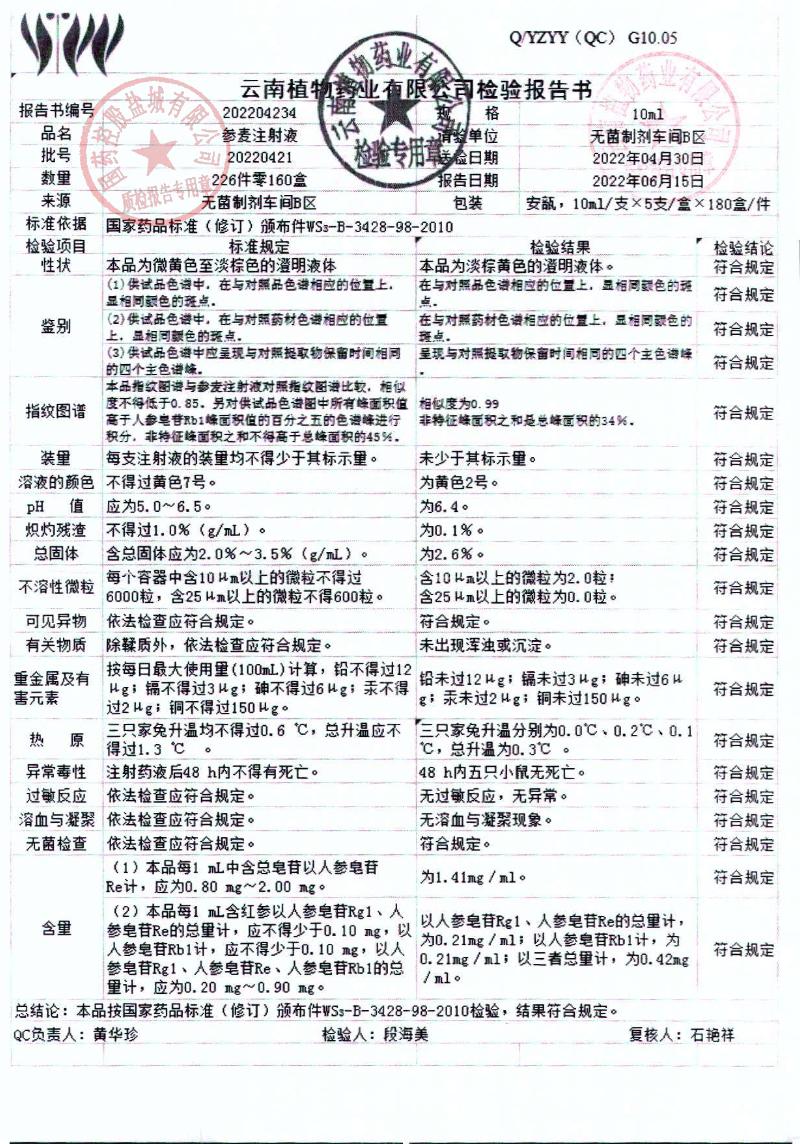 Q/YZYY（QC） G10.05
云南植物药业有限公司检验报告书
报告书编号 202204234 规 格 10ml
品名 参麦注射液 请验单位 无菌制剂车间B区
批号 20220421 送检日期 2022年04月30日
数量 226件零160盒 报告日期 2022年06月15日
来源 无菌制剂车间B区 包装 安瓿，10ml/支×5支/盒×180盒/件
标准依据 国家药品标准（修订）颁布件WS₃-B-3428-98-2010
检验项目 标准规定 检验结果 检验结论
性状 本品为微黄色至淡棕色的澄明液体 本品为淡棕黄色的澄明液体。 符合规定
鉴别
(1)供试品色谱中，在与对照品色谱相应的位置上，
显相同颜色的斑点。
在与对照品色谱相应的位置上，显相同颜色的斑
点。
符合规定
(2)供试品色谱中，在与对照药材色谱相应的位置
上，显相同颜色的斑点。
在与对照药材色谱相应的位置上，显相同颜色的
斑点。
符合规定
(3)供试品色谱中应呈现与对照提取物保留时间相同
的四个主色谱峰。
呈现与对照提取物保留时间相同的四个主色谱峰
。
符合规定
指纹图谱
本品指纹图谱与参麦注射液对照指纹图谱比较，相似
度不得低于0.85。另对供试品色谱图中所有峰面积值
高于人参皂苷Rb1峰面积值的百分之五的色谱峰进行
积分，非特征峰面积之和不得高于总峰面积的45%。
相似度为0.99
非特征峰面积之和是总峰面积的34%。
符合规定
装量 每支注射液的装量均不得少于其标示量。 未少于其标示量。 符合规定
溶液的颜色 不得过黄色7号。 为黄色2号。 符合规定
pH 值 应为5.0～6.5。 为6.4。 符合规定
炽灼残渣 不得过1.0%（g/mL）。 为0.1%。 符合规定
总固体 含总固体应为2.0%～3.5%（g/mL）。 为2.6%。 符合规定
不溶性微粒
每个容器中含10μm以上的微粒不得过
6000粒，含25μm以上的微粒不得600粒。
含10μm以上的微粒为2.0粒；
含25μm以上的微粒为0.0粒。
符合规定
可见异物 依法检查应符合规定。 符合规定。 符合规定
有关物质 除鞣质外，依法检查应符合规定。 未出现浑浊或沉淀。 符合规定
重金属及有
害元素
按每日最大使用量(100mL)计算，铅不得过12
μg；镉不得过3μg；砷不得过6μg；汞不得
过2μg；铜不得过150μg。
铅未过12μg；镉未过3μg；砷未过6μ
g；汞未过2μg；铜未过150μg。
符合规定
热 原
三只家兔升温均不得过0.6 ℃，总升温应不
得过1.3 ℃ 。
三只家兔升温分别为0.0℃、0.2℃、0.1
℃，总升温为0.3℃ 。
符合规定
异常毒性 注射药液后48 h内不得有死亡。 48 h内五只小鼠无死亡。 符合规定
过敏反应 依法检查应符合规定。 无过敏反应，无异常。 符合规定
溶血与凝聚 依法检查应符合规定。 无溶血与凝聚现象。 符合规定
无菌检查 依法检查应符合规定。 符合规定。 符合规定
含量
（1）本品每1 mL中含总皂苷以人参皂苷
Re计，应为0.80 mg～2.00 mg。
为1.41mg／ml。
符合规定
（2）本品每1 mL含红参以人参皂苷Rg1、人
参皂苷Re的总量计，应不得少于0.10 mg，以
人参皂苷Rb1计，应不得少于0.10 mg，以人
参皂苷Rg1、人参皂苷Re、人参皂苷Rb1的总
量计，应为0.20 mg～0.90 mg。
以人参皂苷Rg1、人参皂苷Re的总量计，
为0.21mg／ml；以人参皂苷Rb1计，为
0.21mg／ml；以三者总量计，为0.42mg
／ml。
符合规定
总结论：本品按国家药品标准（修订）颁布件WS₃-B-3428-98-2010检验，结果符合规定。
QC负责人：黄华珍 检验人：段海美 复核人：石艳祥
云南植物药业有限公司
检验专用章
国药控股盐城有限公司
质检报告专用章